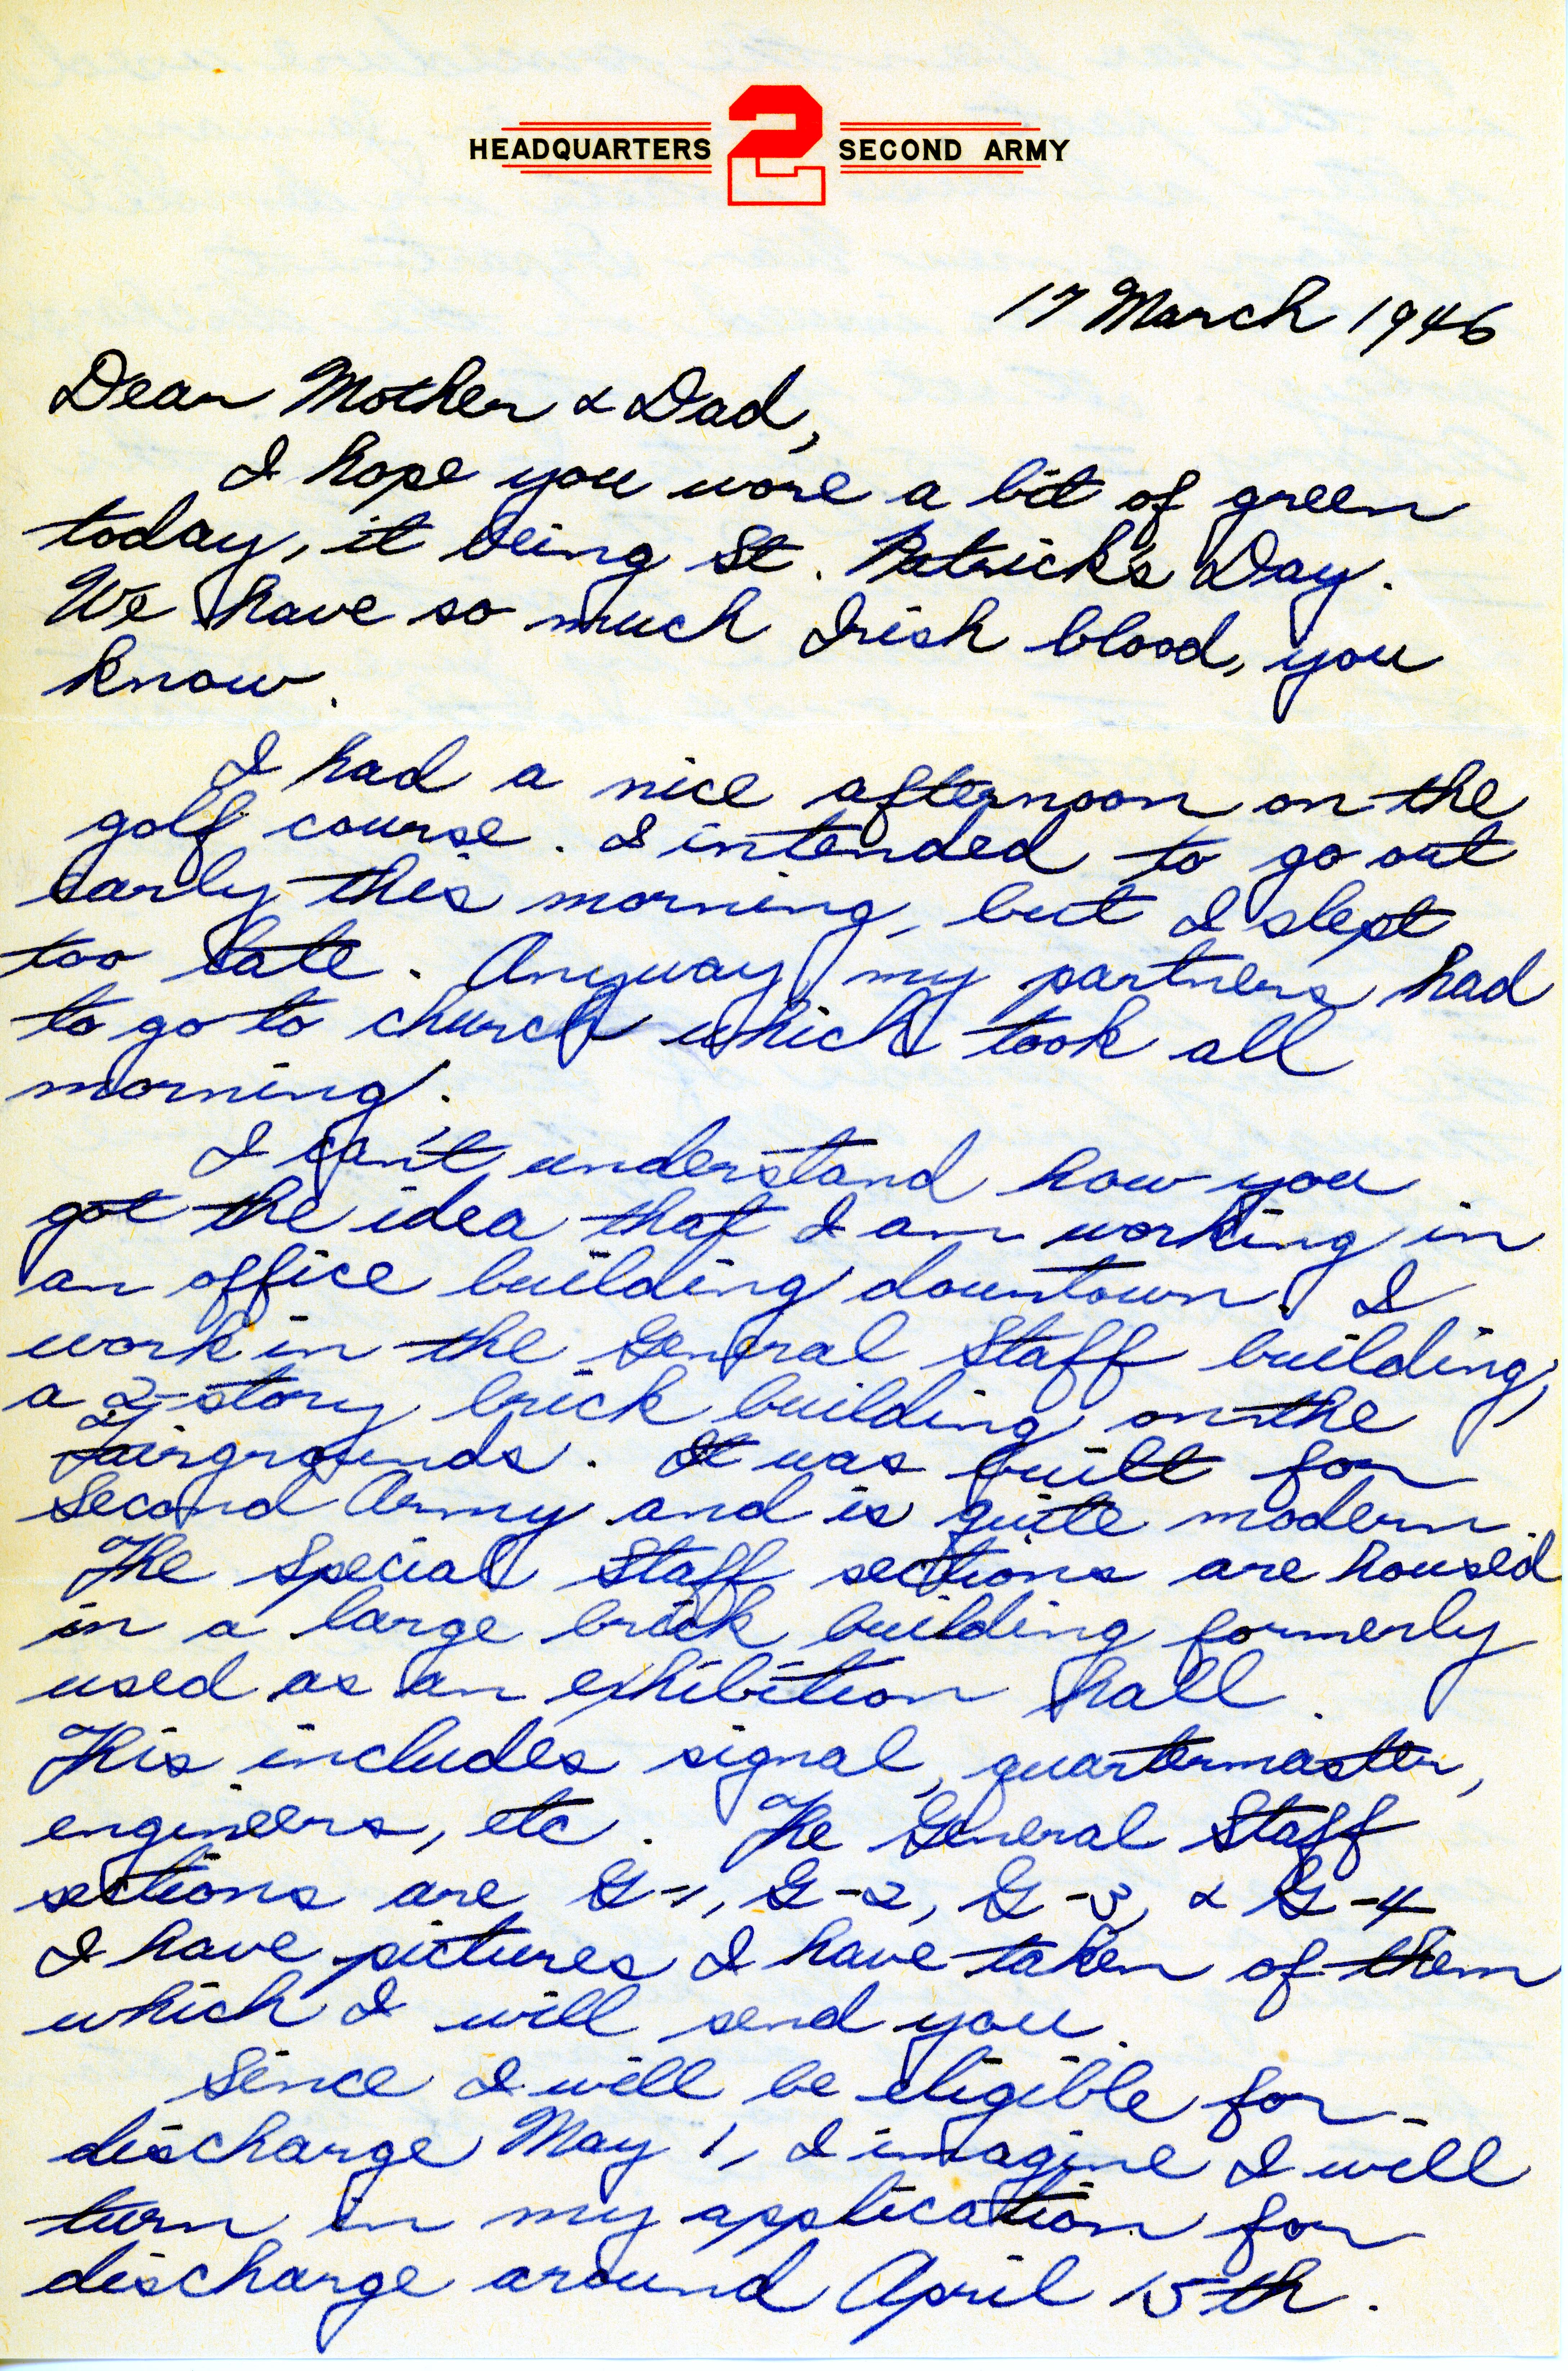 HEADQUARTERS 2 SECOND ARMY
17 March 1946
Dear Mother & Dad,
I hope you wore a bit of green
today, it being St. Patrick's Day.
We have so much Irish blood, you
know.
I had a nice afternoon on the
golf course. I intended to go out
early this morning, but I slept
too late. Anyway, my partners had
to go to church which took all
morning.
I can't understand how you
got the idea that I am working in
an office building downtown. I
work in the General Staff building,
a 2-story brick building on the
Fairgrounds. It was built for
Second Army and is quite modern.
The Special Staff sections are housed
in a large brick building formerly
used as an exhibition hall.
This includes signal, quartermaster,
engineers, etc. The General Staff
sections are G-1, G-2, G-3, & G-4
I have pictures I have taken of them
which I will send you.
Since I will be eligible for
discharge May 1, I imagine I will
turn in my application for
discharge around April 15th.